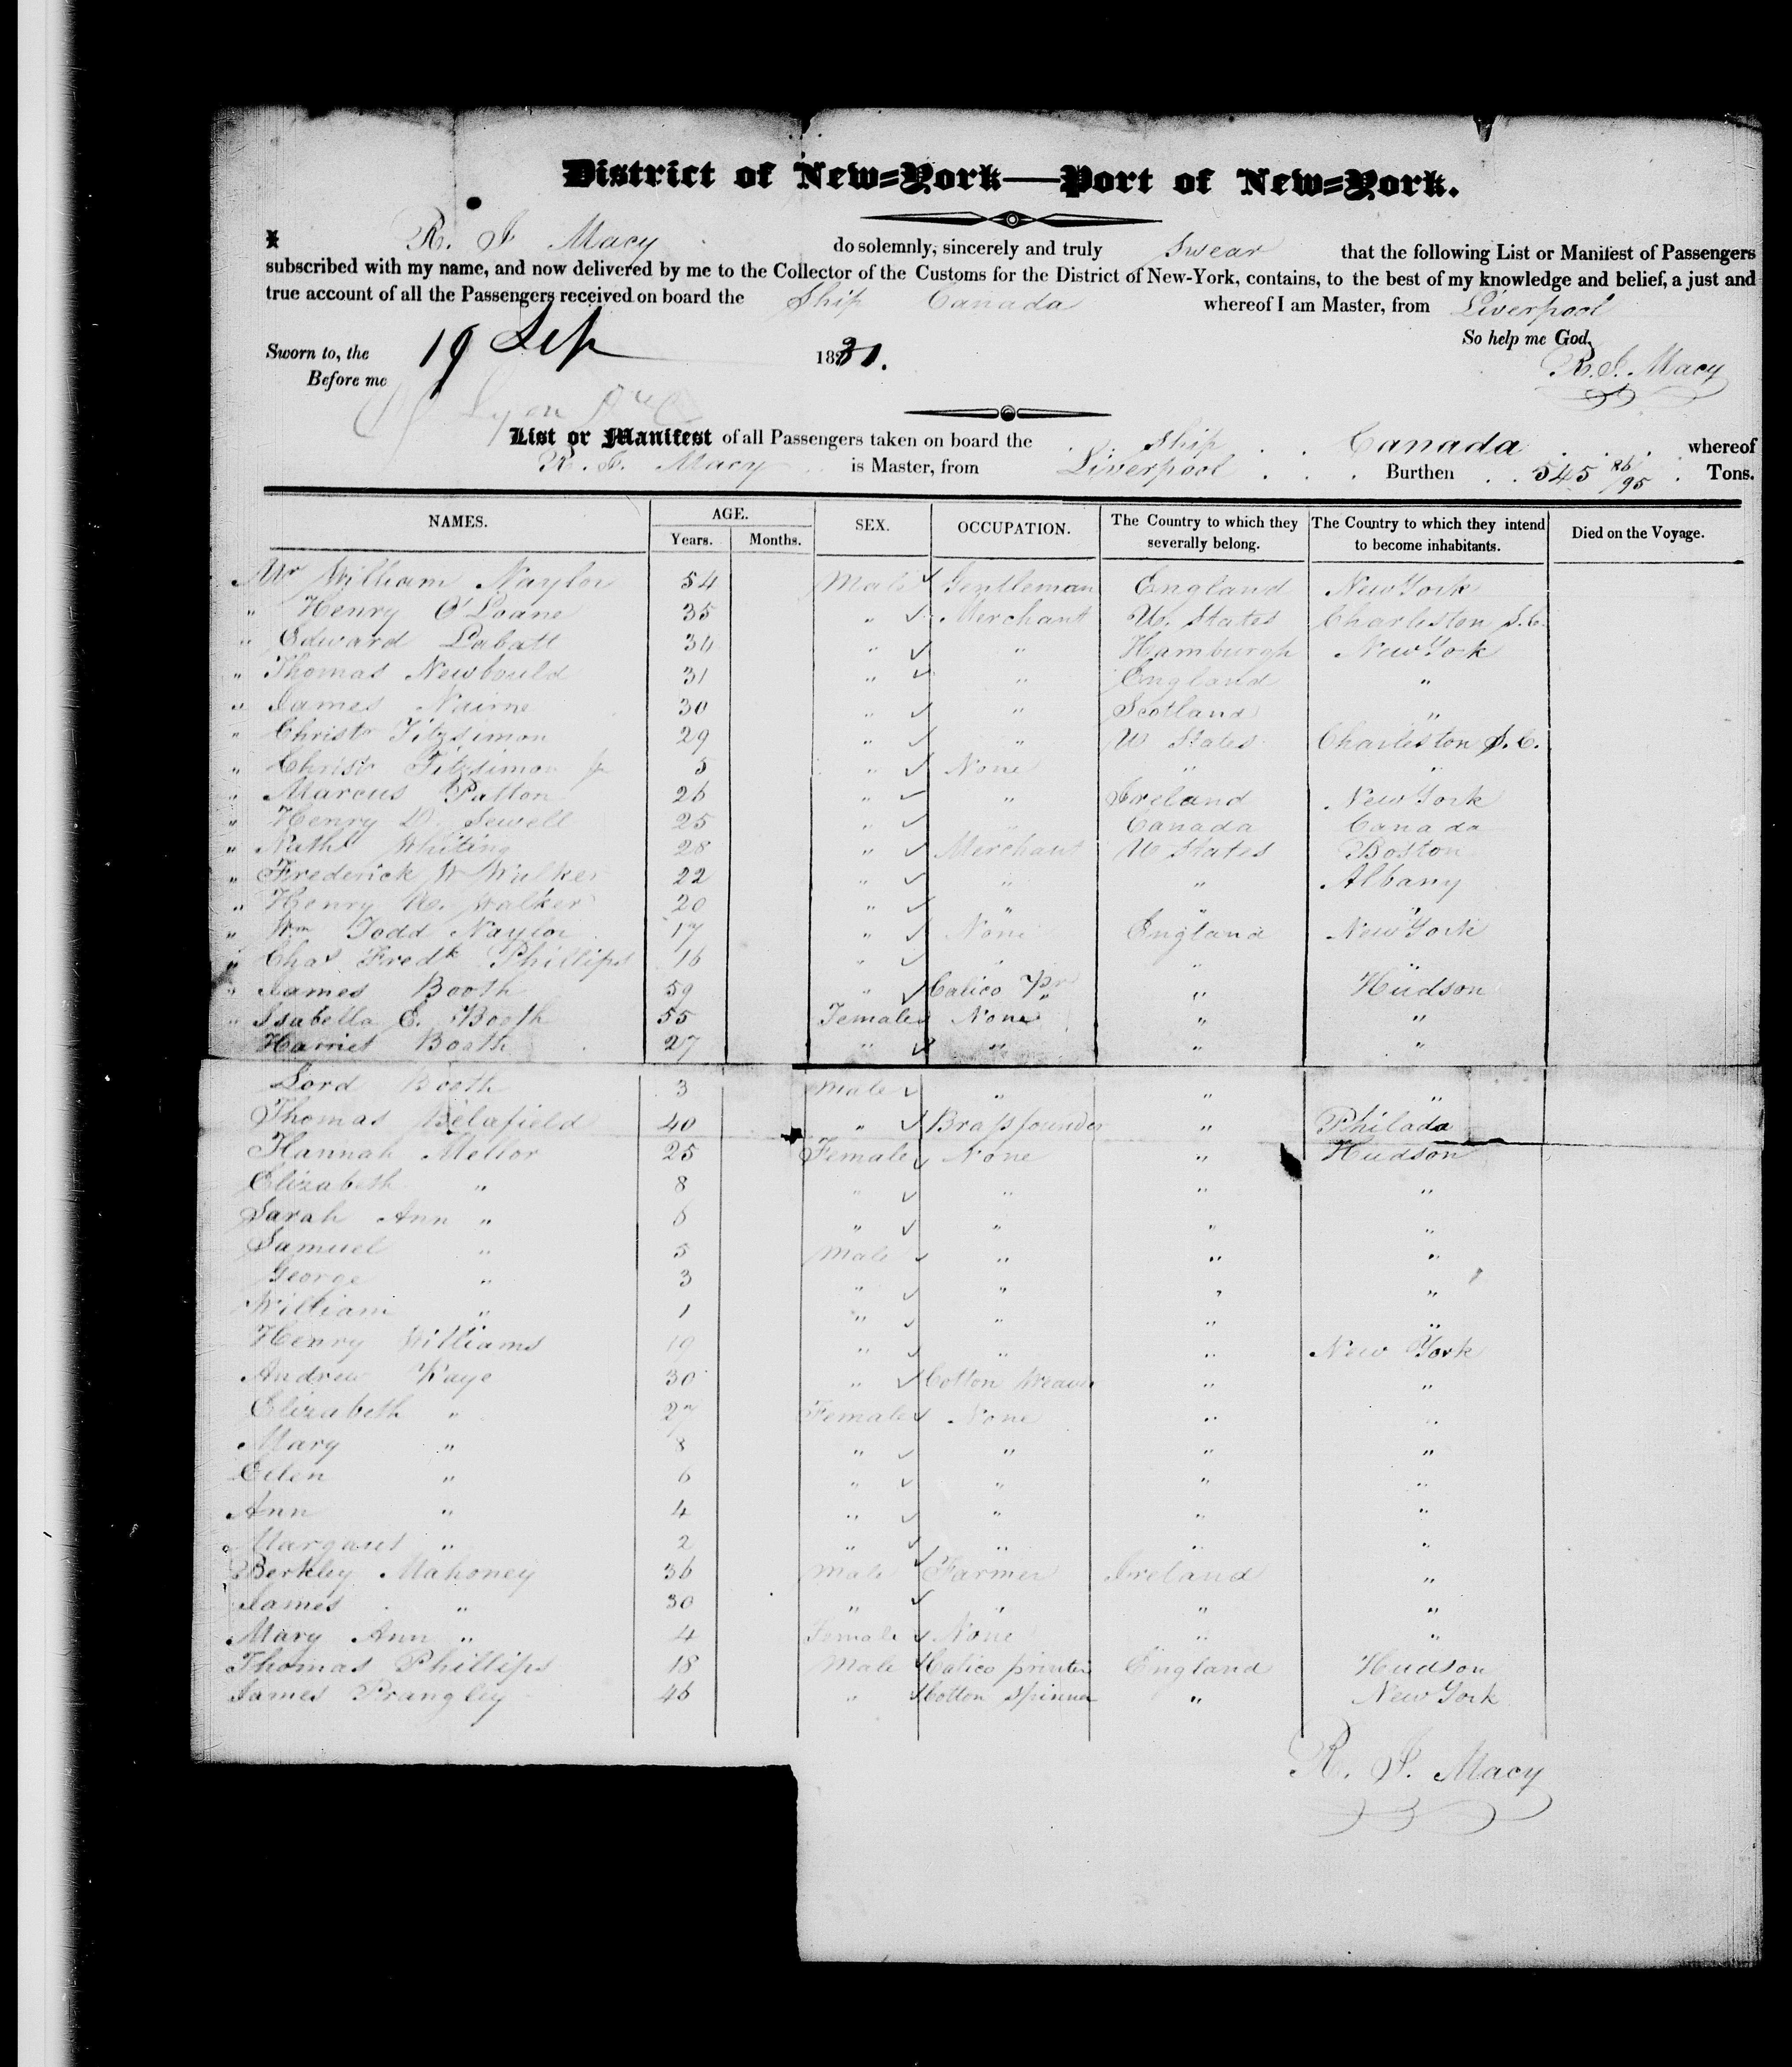 District of New=York—Port of New=York.
I R. J. Macy do solemnly, sincerely and truly Swear that the following List or Manifest of Passengers
subscribed with my name, and now delivered by me to the Collector of the Customs for the District of New-York, contains, to the best of my knowledge and belief, a just and
true account of all the Passengers received on board the Ship Canada whereof I am Master, from Liverpool
So help me God.
Sworn to, the 19 Sep 1831.
R. J. Macy
Before me
List or Manifest of all Passengers taken on board the Ship Canada whereof
R. J. Macy is Master, from Liverpool Burthen 545 86/95 Tons.
NAMES. AGE. SEX. OCCUPATION. The Country to which they severally belong. The Country to which they intend to become inhabitants. Died on the Voyage.
Years. Months.
Mr William Naylor 54 Male Gentleman England New York
" Henry O'Loane 35 " Merchant U. States Charleston S.C.
" Edward Labatt 34 " " Hamburgh New York
" Thomas Newbould 31 " " England "
" James Nairne 30 " " Scotland "
" Christr Fitzsimon 29 " " U States Charleston S.C.
" Christr Fitzsimon Jr 5 " None " "
" Marcus Patton 26 " " Ireland New York
" Henry D. Sewell 25 " " Canada Canada
" Nathl Whiting 28 " Merchant U States Boston
" Frederick W Walker 22 " " " Albany
" Henry A. Walker 20 " " " "
" Wm Todd Naylor 17 " None England New York
" Chas Fredk Phillips 16 " " " "
" James Booth 59 " Calico Pr " Hudson
" Isabella E. Booth 55 Female None " "
Harriet Booth 27 " " " "
Lord Booth 3 Male " " "
Thomas Belafield 40 " Brassfounder " Philada
Hannah Mellor 25 Female None " Hudson
Elizabeth " 8 " " " "
Sarah Ann " 6 " " " "
Samuel " 5 Male " " "
George " 3 " " " "
William " 1 " " " "
Henry Williams 19 " " " New York
Andrew Kaye 30 " Cotton Weaver " "
Elizabeth " 27 Female None " "
Mary " 8 " " " "
Ellen " 6 " " " "
Ann " 4 " " " "
Margaret " 2 " " " "
Berkley Mahoney 36 Male Farmer Ireland "
James " 30 " " " "
Mary Ann " 4 Female None " "
Thomas Phillips 18 Male Calico printer England Hudson
James Prangley 46 " Cotton Spinner " New York
R. J. Macy